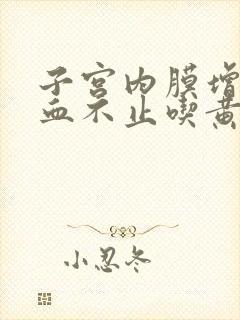 子宫内膜增
血不止吃黄
小忍冬